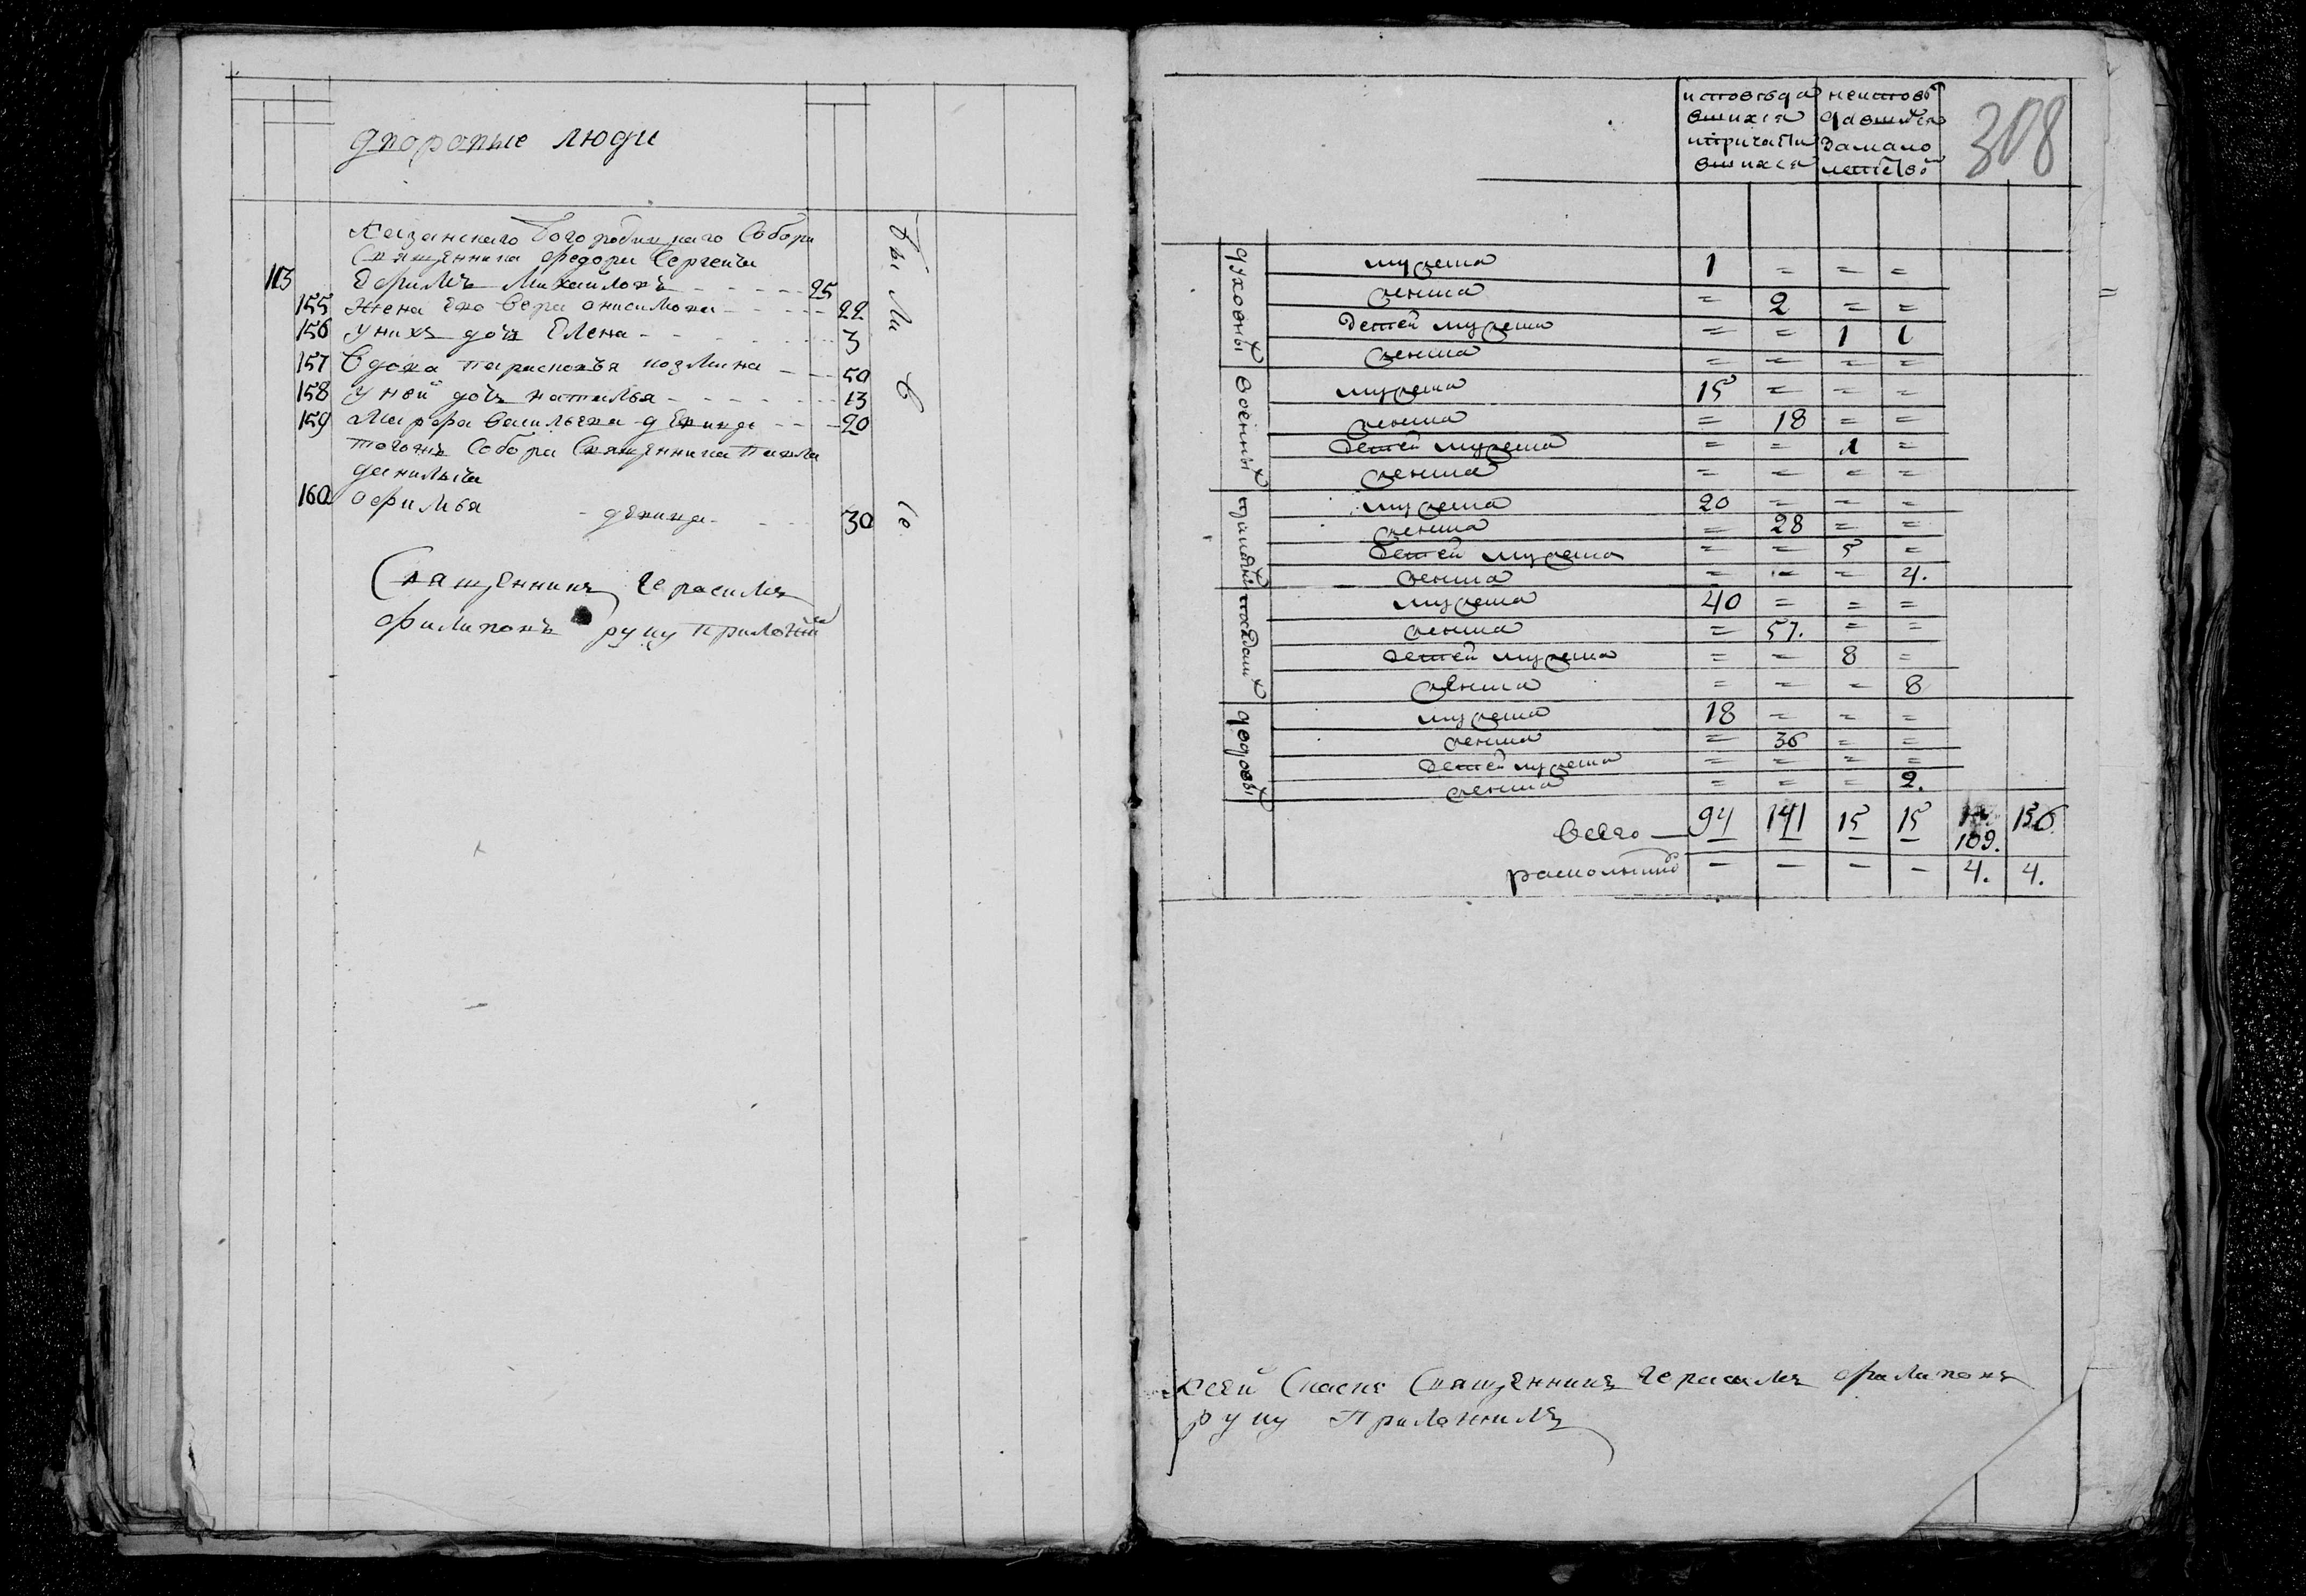 дворовые люди
Казанскаго Богородицкаго Собора
Священника Федора Сергеева
113 Ефимъ Михайловъ 25
155 жена Ево Вера онисимова 22
156 У нихъ дочь Елена 3
157 Вдова Парасковья козмина 50
158 У ней дочь наталья 13
159 Марфа васильева девица 20
тогожъ Собора Священника Павла
данилыча
160 офимья девица 30
бы ли в се
Священникъ Герасимъ
Филиповъ руку приложил
308
исповеда вшихся ипричасти вшихся
неиспове давшихся замало летствo
духовных
мужеска 1 = = =
женска = 2 = =
детей мужеска = = 1 1
женска = = = =
военных
мужеска 15 = = =
женска = 18 = =
детей мужеска = = 1 =
женска = = = =
приказных
мужеска 20 = = =
женска = 28 = =
детей мужеска = = 5 =
женска = = = 4.
посадских
мужеска 40 = = =
женска = 57. = =
детей мужеска = = 8 =
женска = = = 8
дворовых
мужеска 18 = = =
женска = 36 = =
детей мужеска = = = =
женска = = = 2.
всего 94 141 15 15 109. 156.
расколников - - - - 4. 4.
ксей Сказке Священникъ Герасимъ филиповъ
руку Приложилъ